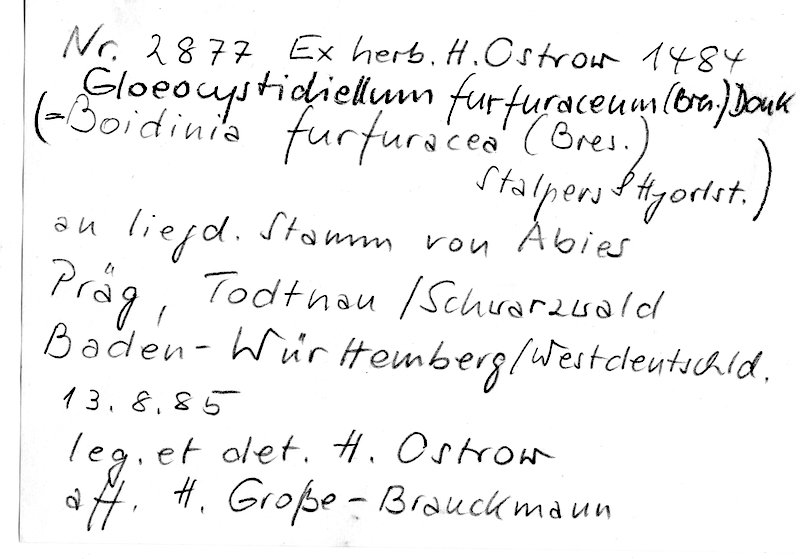 Nr. 2877 Ex herb. H. Ostrow 1484
Gloeocystidiellum furfuraceum (Bres.) Donk
(= Boidinia furfuracea (Bres.)
Stalpers & Hjortst.)
an liegd. Stamm von Abies
Präg, Todtnau / Schwarzwald
Baden-Württemberg / Westdeutschld.
13.8.85
leg. et det. H. Ostrow
aff. H. Große-Brauckmann